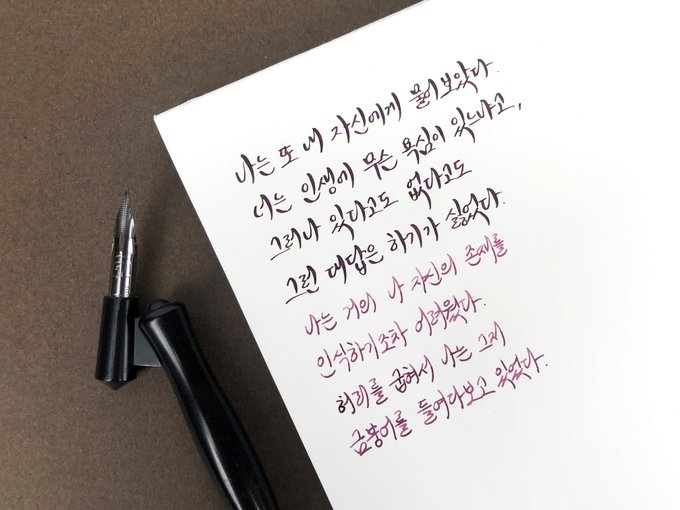 나는 또 내 자신에게 물어보았다.
너는 인생에 무슨 욕심이 있느냐고,
그러나 있다고도 없다고도
그런 대답은 하기가 싫었다.
나는 거의 나 자신의 존재를
인식하기조차 어려웠다.
허리를 굽혀서 나는 그저
금붕어를 들여다보고 있었다.